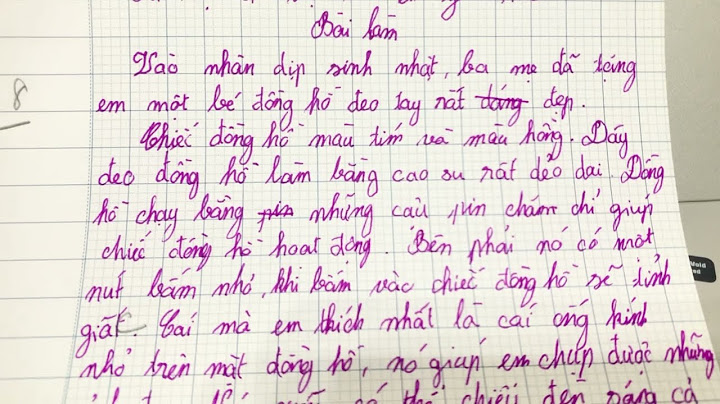 Bài làm
8
Vào nhân dịp sinh nhật, ba mẹ đã tặng
em một bé đồng hồ đeo tay rất đáng đẹp.
Chiếc đồng hồ màu tím và màu hồng. Dây
đeo đồng hồ làm bằng cao su rất dẻo dai. Đồng
hồ chạy bằng pin những cái pin chăm chỉ giúp
chiếc đồng hồ hoạt động. Bên phải nó có một
nút bấm nhỏ, khi bấm vào chiếc đồng hồ sẽ tỉnh
giấc. Cái mà em thích nhất là cái ống kính
nhỏ trên mặt đồng hồ, nó giúp em chụp được những
có thể chiếu đèn sáng cả